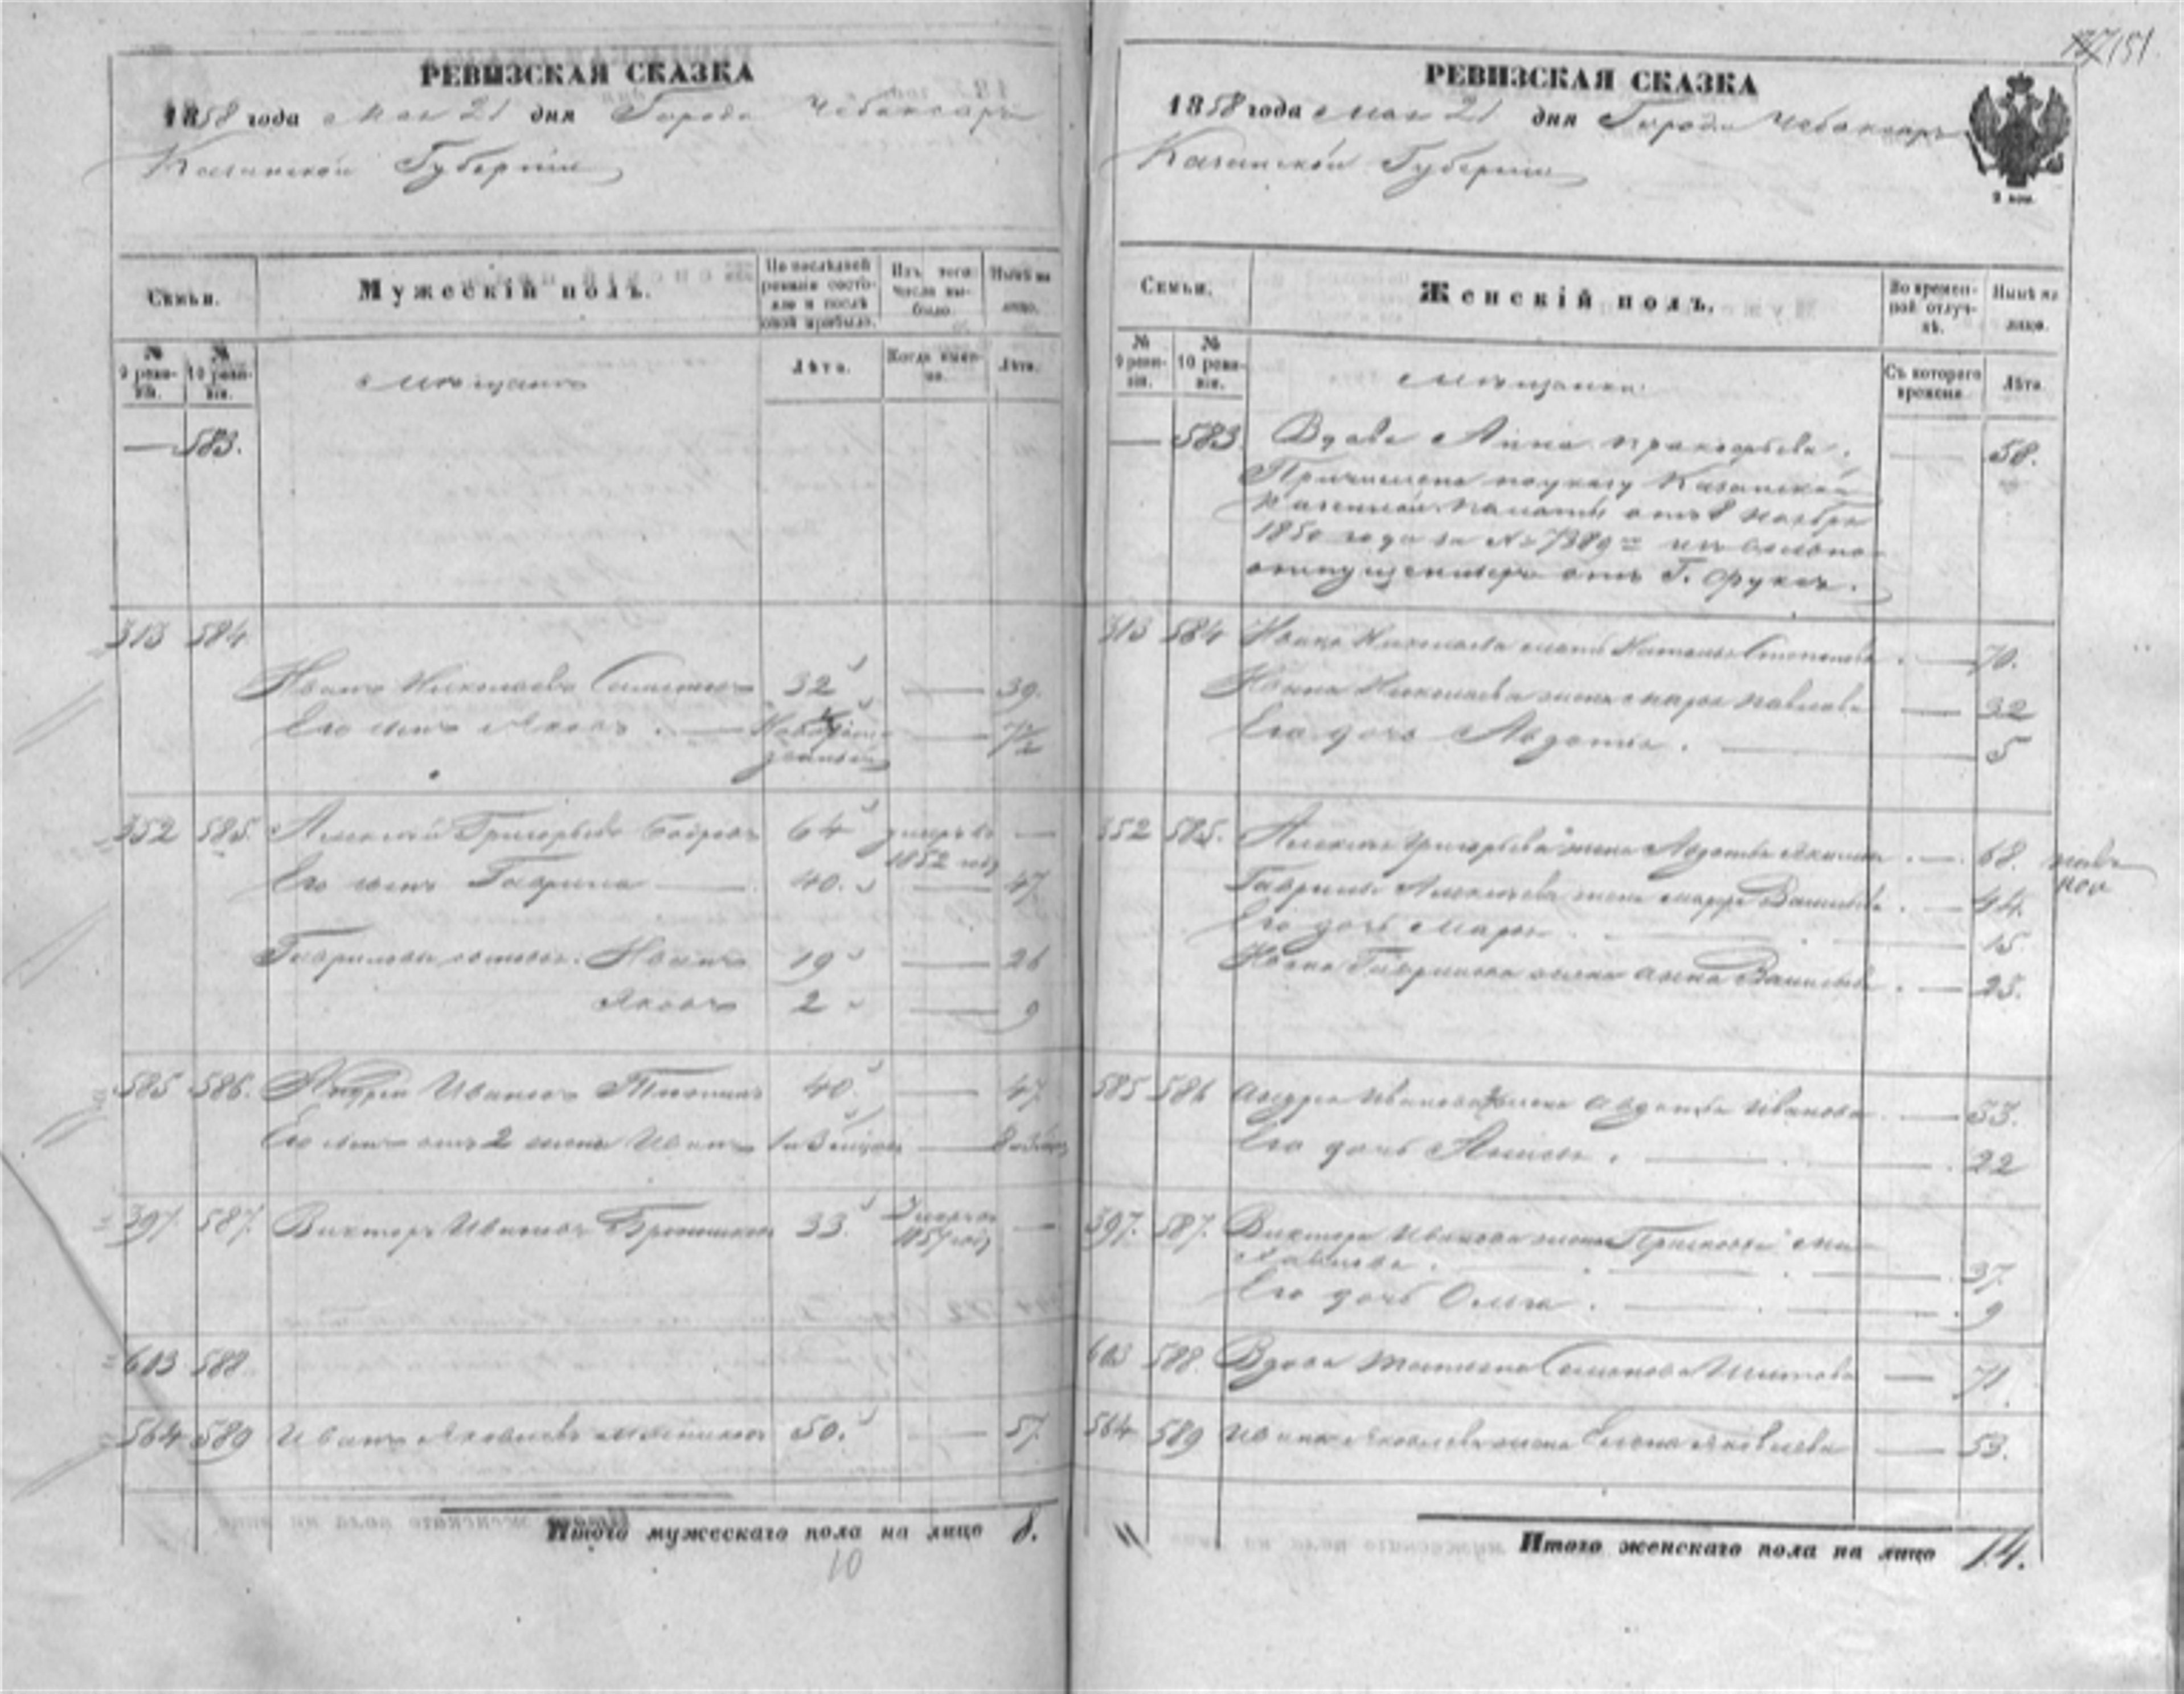 151
РЕВИЗСКАЯ СКАЗКА
1858 года Мая 21 дня Города Чебоксаръ
Казанской Губерніи
Семьи.
Мужескій полъ.
По послѣдней ревизіи состояло и послѣ оной прибыло.
Изъ того числа выбыло.
Нынѣ на лицо.
№ 9 ревизіи.
№ 10 ревизіи.
Мѣщане
Лѣта.
Когда именно.
Лѣта.
— 583.
313 584
Иванъ Николаевъ 32 — 39.
Его сынъ Яковъ. — Новорожденный — 7½
352 585. Алексѣй Григорьевъ Бобровъ 64 умеръ въ 1852 году —
Его сынъ Гаврила — 40. — 47.
Гавриловы сыновья. Иванъ 19 — 26
Яковъ 2 — 9
585 586. Андрей Ивановъ 40. — 47
Его сынъ отъ 2 жены Иванъ 1 и 3 мѣсяц —
397. 587. Викторъ Ивановъ 33. Умеръ въ 1857 году —
603 588
564 589 Иванъ Яковлевъ 50. — 57.
Итого мужескаго пола на лицо 8.
10
РЕВИЗСКАЯ СКАЗКА
1858 года Мая 21 дня Города Чебоксаръ
Казанской Губерніи
Семьи.
Женскій полъ.
Во временной отлучкѣ.
Нынѣ на лицо.
№ 9 ревизіи.
№ 10 ревизіи.
Мѣщанки
Съ котораго времени
Лѣта
— 583 Вдова Анна Прокофьева. — 58.
Причислена по указу Казанской
Казенной Палаты отъ 8 Ноября
1850 года за № 7389 изъ вольно-
отпущенныхъ отъ Г. Фуксъ.
313 584 Ивана Николаева мать Наталья Степанова. — 70.
Ивана Николаева жена Марья Павлова — 32
Его дочь Авдотья. — 5
352 585. Алексѣя Григорьева жена Авдотья — 68.
Гаврилы Алексѣева жена Марфа Васильева. — 44.
Его дочь Марья — 15
Ивана Гаврилова жена Анна Васильева. — 25.
585 586 Андрея Иванова жена Авдотья Иванова — 53.
Его дочь — 22
397. 587. Виктора Иванова жена Прасковья
— 37.
Его дочь Ольга. — 9
603 588. Вдова Татьяна Семенова — 71.
564 589 Ивана Яковлева жена Елена Яковлева — 53.
Итого женскаго пола на лицо 14.